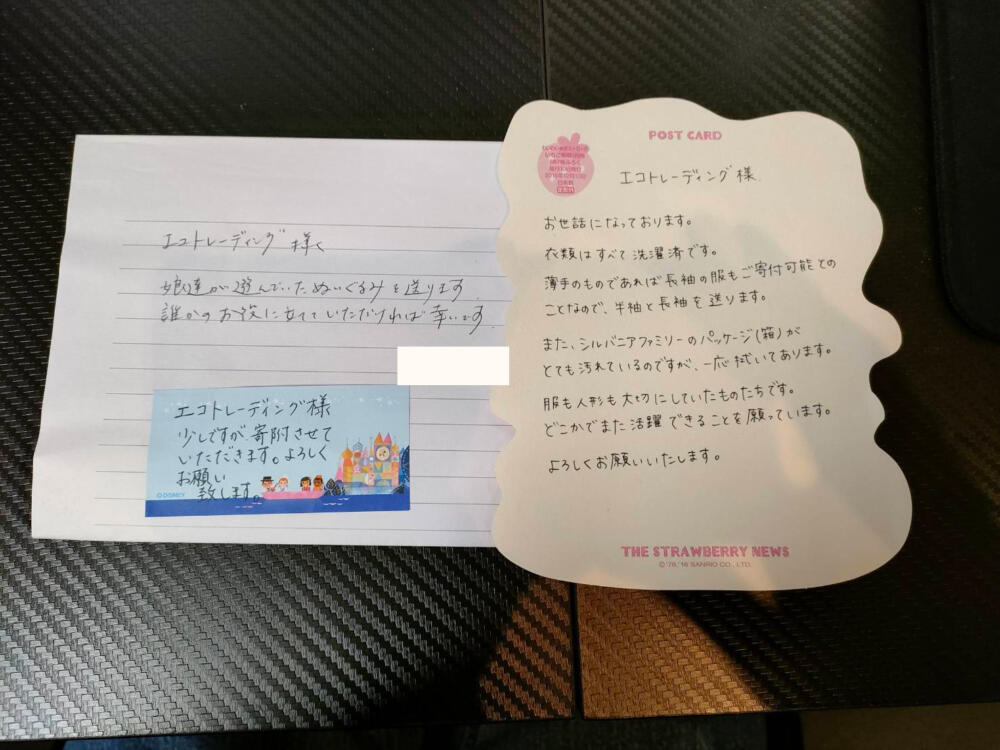 エコトレーディング様
娘達が遊んでいたぬいぐるみを送ります
誰かのお役に立てていただければ幸いです
エコトレーディング様
少しですが寄附させて
いただきます。よろしく
お願い
致します。
©DISNEY
POST CARD
エコトレーディング様
お世話になっております。
衣類はすべて洗濯済です。
薄手のものであれば長袖の服もご寄付可能との
ことなので、半袖と長袖を送ります。
また、シルバニアファミリーのパッケージ(箱)が
とても汚れているのですが、一応拭いてあります。
服も人形も大切にしていたものたちです。
どこかでまた活躍できることを願っています。
よろしくお願いいたします。
THE STRAWBERRY NEWS
©'76,'16 SANRIO CO., LTD.